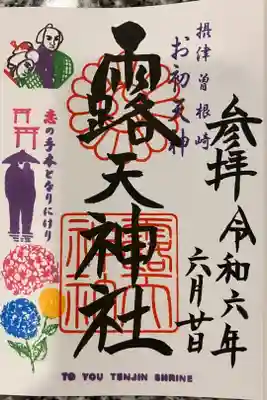 参拝
令和六年
六月廿日
摂津曽根崎
お初天神
露天神社
露天神社
恋の手本となりにけり
TO YOU TENJIN SHRINE